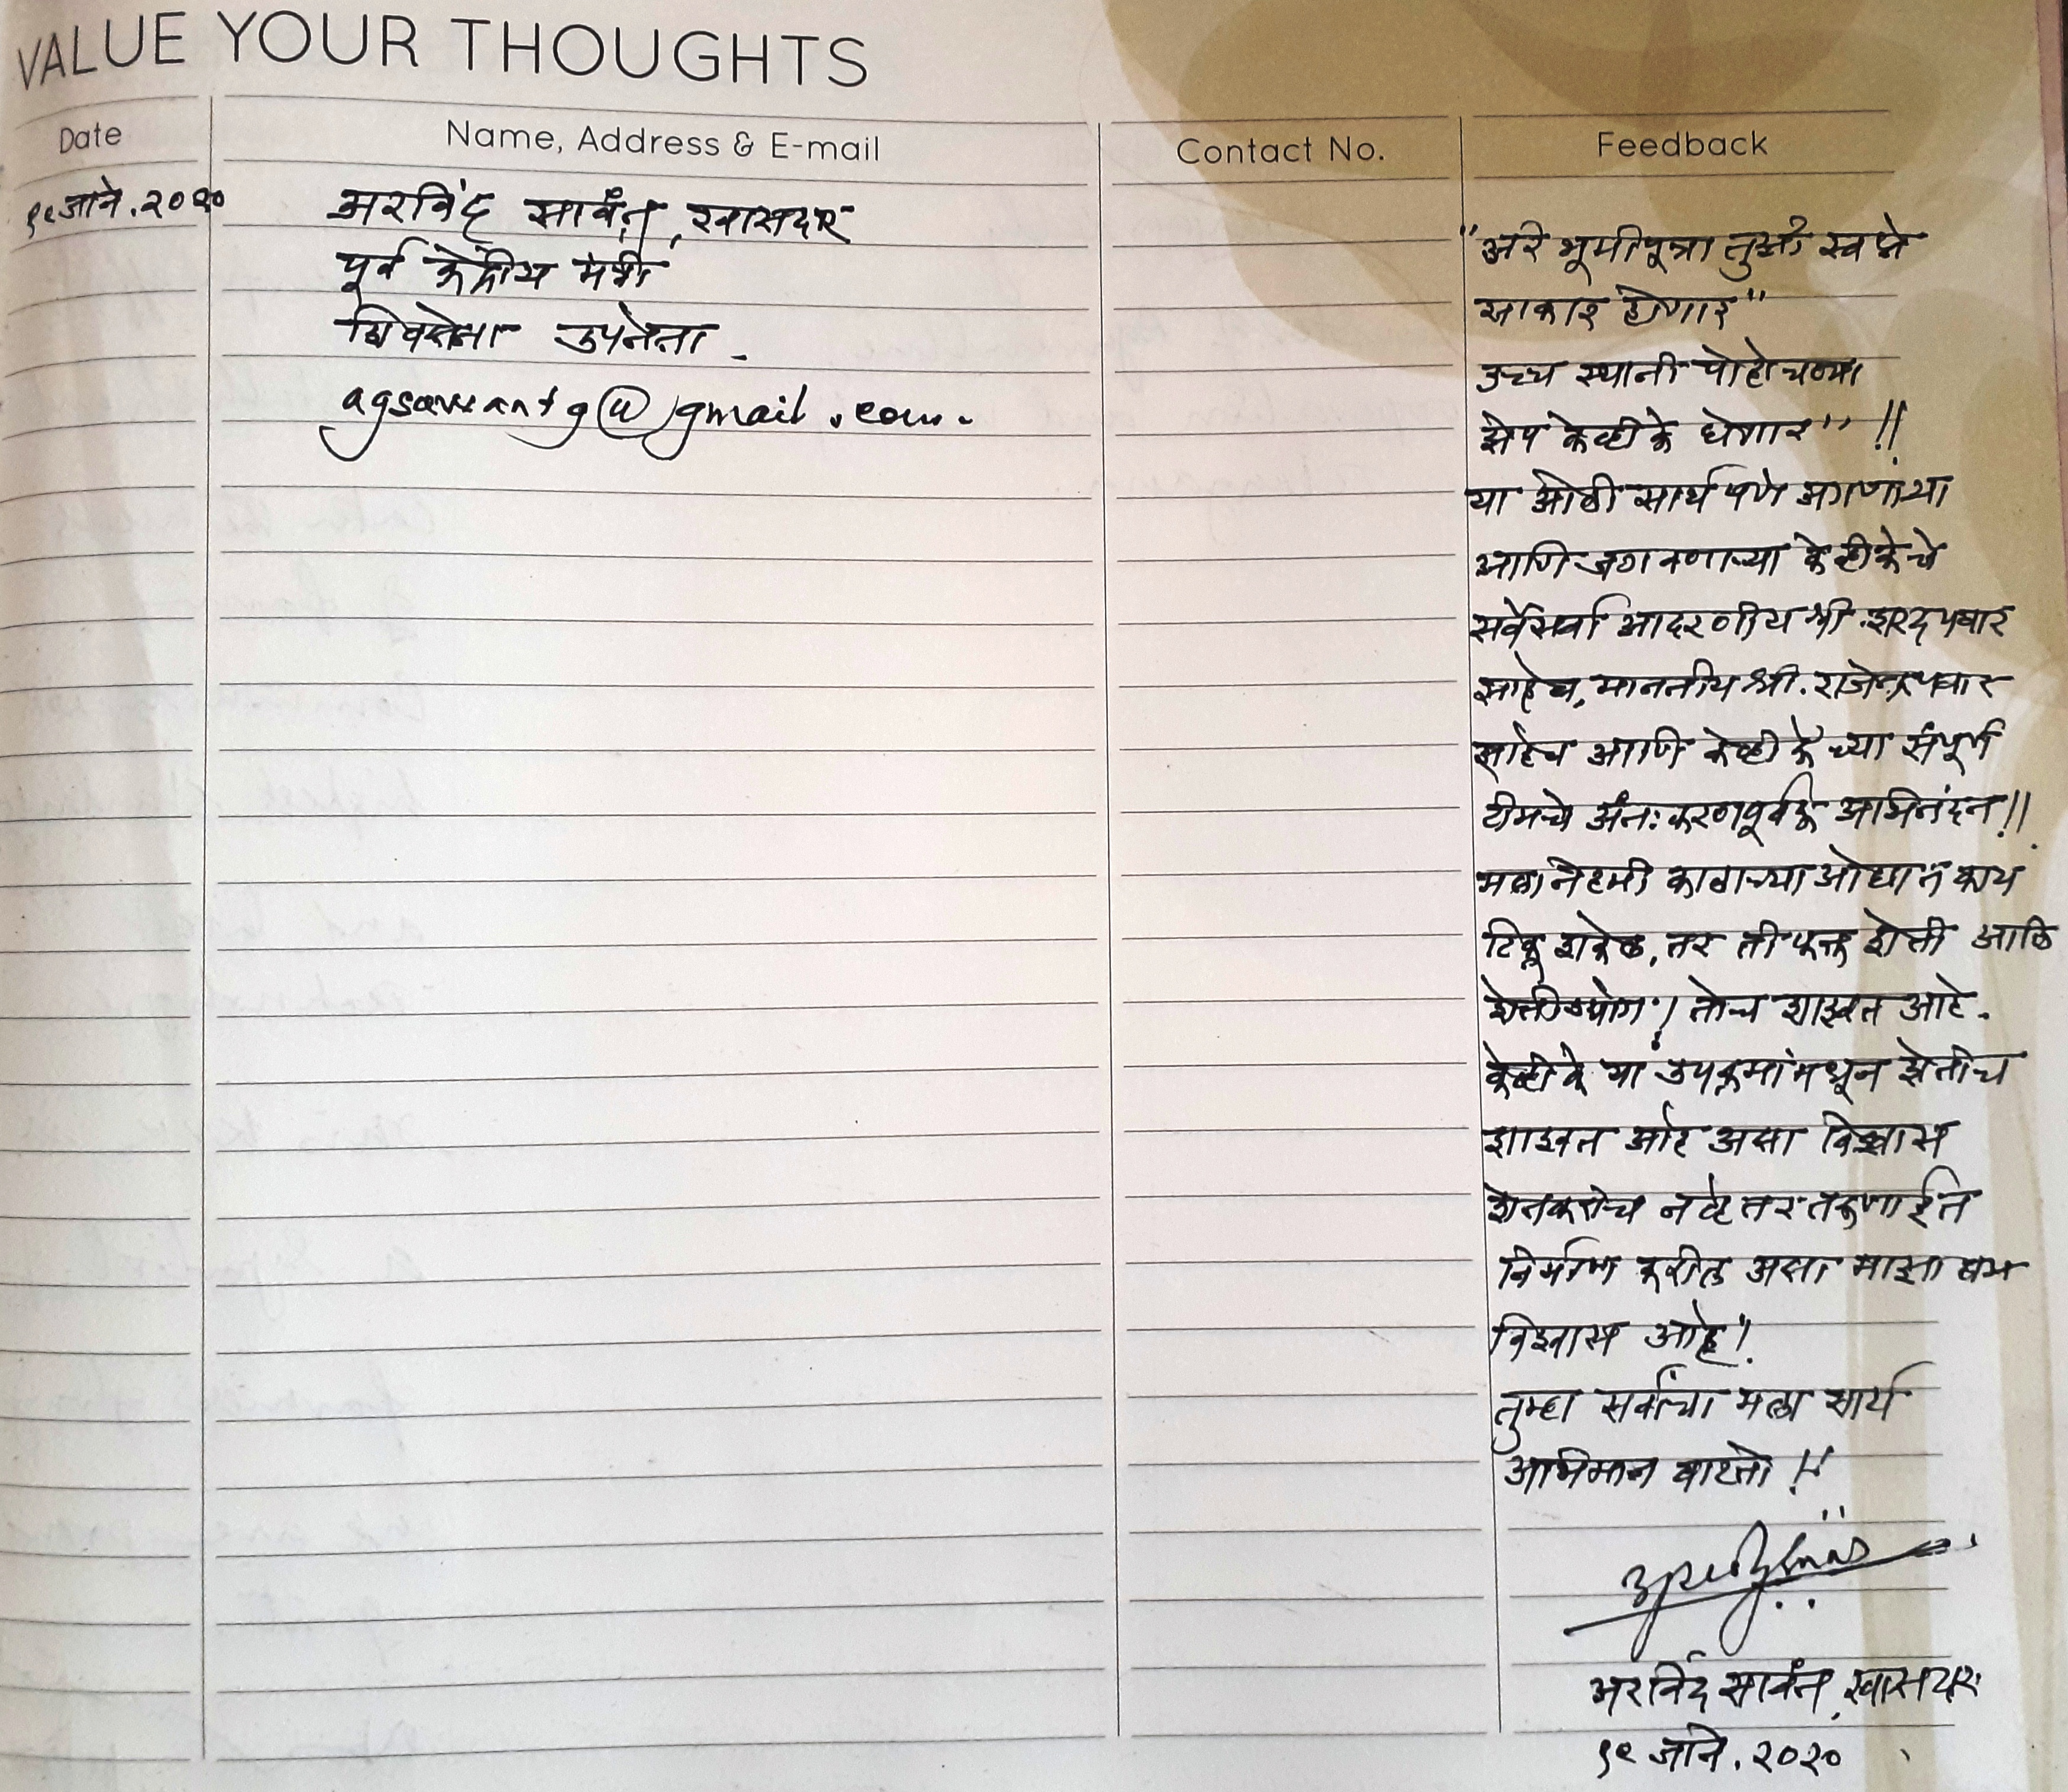 VALUE YOUR THOUGHTS
Date
Name, Address & E-mail
Contact No.
Feedback
१९ जाने. २०२०
अरविंद सावंत, खासदार
पूर्व केंद्रीय मंत्री
शिवसेना उपनेता.
agsawantg@gmail.com.
"अरे भूमीपूत्रा तुझी स्वप्ने
साकार होणार"
उच्च स्थानी पोहोचण्या
झेप केव्हीके घेणार" !!
या ओळी सार्थपणे जगणाऱ्या
आणि जगवणाऱ्या केव्हीकेचे
सर्वेसर्वा आदरणीय श्री. शरद पवार
साहेब, माननीय श्री. राजेन्द्र पवार
साहेब आणि केव्हीके च्या संपूर्ण
टीमचे अंतःकरणपूर्वक अभिनंदन!!
मला नेहमी काळाच्या ओघात काय
टिकू शकेल, तर ती फक्त शेती आणि
शेतीउद्योग! तोच शाश्वत आहे.
केव्हीके या उपक्रमांमधून शेतीच
शाश्वत आहे असा विश्वास
शेतकऱ्यांच नव्हे तर तरुणाईत
निर्माण करील असा माझा ठाम
विश्वास आहे!
तुम्हा सर्वांचा मला सार्थ
अभिमान वाटतो !!
अरविंद सावंत, खासदार
१९ जाने. २०२०